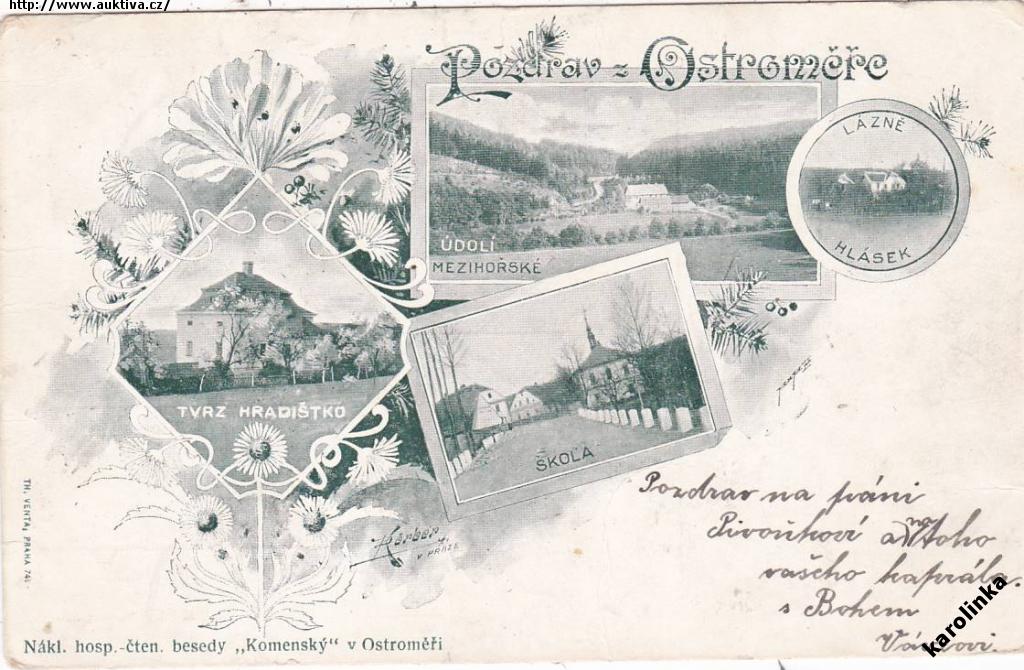 http://www.auktiva.cz/
Pozdrav z Ostroměře
LÁZNĚ
HLÁSEK
ÚDOLÍ
MEZIHOŘSKÉ
TVRZ HRADIŠTKO
ŠKOLA
Körber
V PRAZE
TH. VENTA, PRAHA
Pozdrav na
vašeho kaprála.
s Bohem
karolinka
Nákl. hosp.-čten. besedy „Komenský“ v Ostroměři